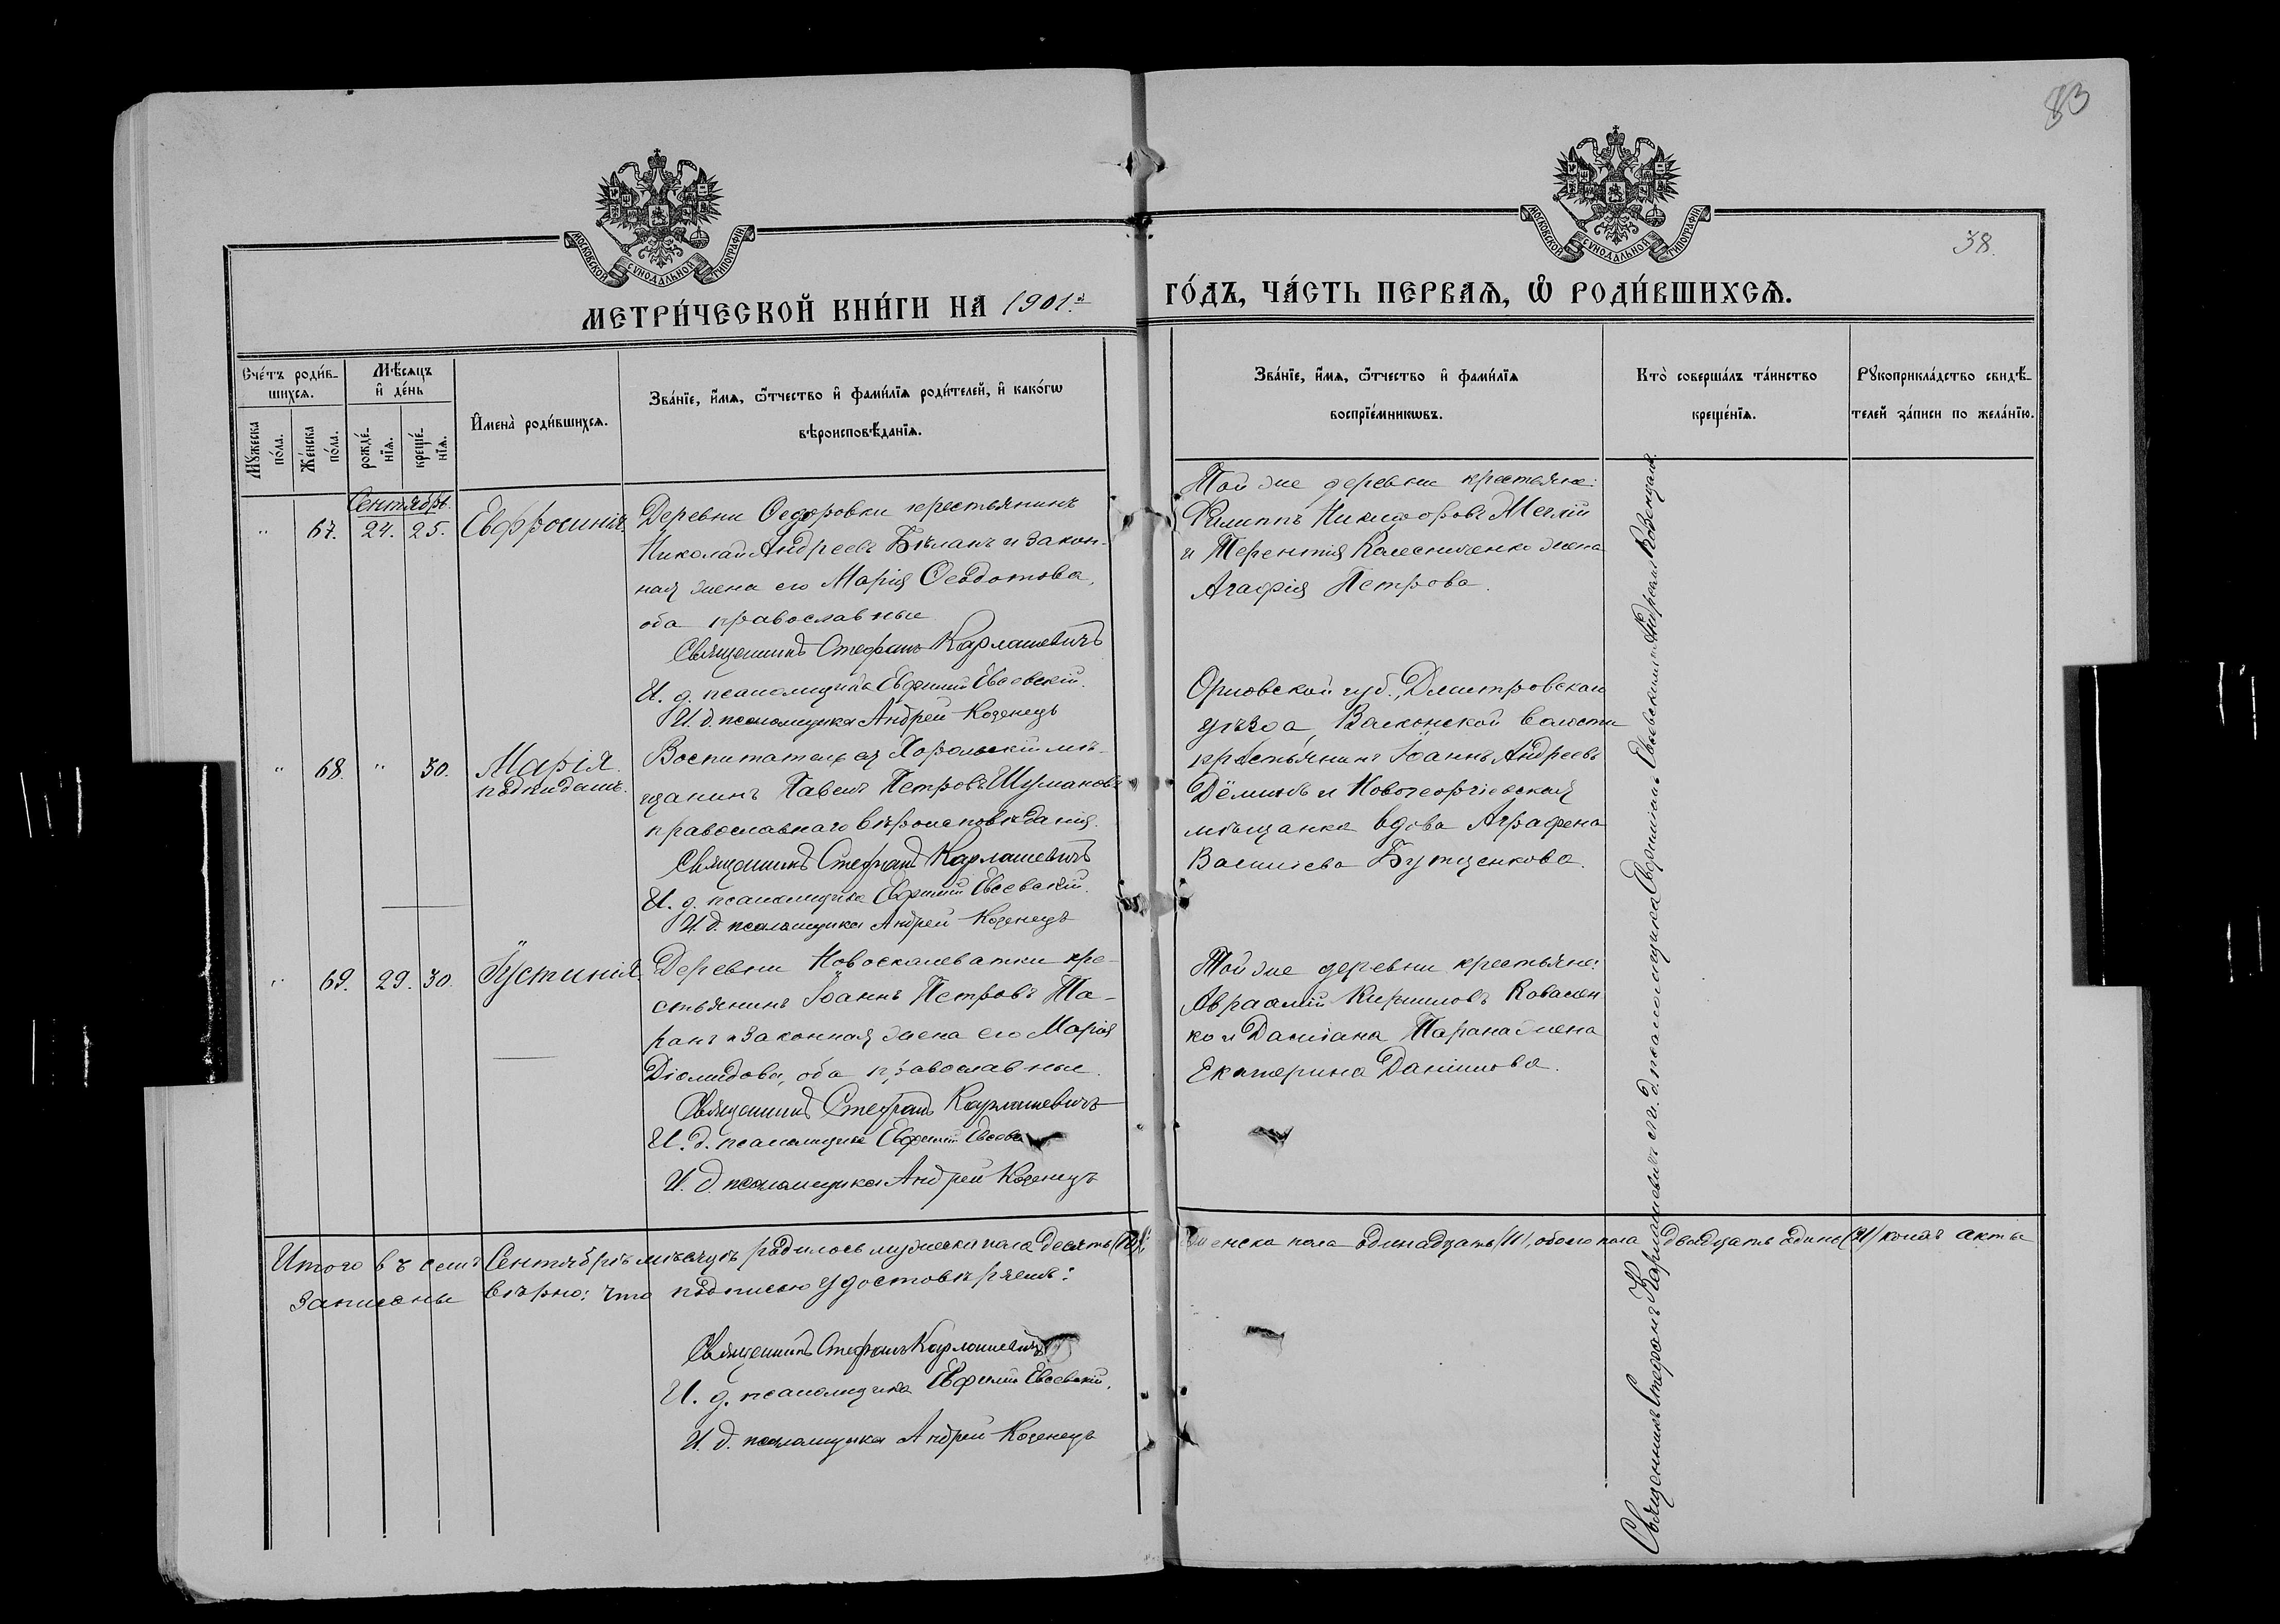 83
38.
МОСКОВСКОЙ СѴНОДАЛЬНОЙ ТИПОГРАФІИ
МОСКОВСКОЙ СѴНОДАЛЬНОЙ ТИПОГРАФІИ
МЕТРИ́ЧЕСКОЙ КНИ́ГИ НА 1901.й ГО́ДЪ, ЧА́СТЬ ПЕРВАѦ, Ѽ РОДИ́ВШИХСѦ.
Сче́тъ роди́в-
шихсѧ.
Мꙋжеска
по́ла.
Же́нска
по́ла.
Мѣ́сѧцъ
и҆ де́нь
рожде́-
нїѧ.
креще́-
нїѧ.
И҆мена̀ роди́вшихсѧ.
Зва́нїе, и҆́мѧ, ѻ҆́тчество и҆ фами́лїѧ роди́телей, и҆ како́гѡ
вѣроисповѣ́данїѧ.
Зва́нїе, и҆́мѧ, ѻ҆́тчество и҆ фами́лїѧ
воспрїе́мникѡвъ.
Кто̀ соверша́лъ та́инство
креще́нїѧ.
Рꙋкоприкла́дство свидѣ́-
телей за́писи по жела́нїю.
Сентябрь.
" 67. 24. 25. Евфросинія.
Деревни Ѳедоровки крестьянинъ
Николай Андреевъ Бѣланъ и закон-
ная жена его Марія Ѳеодотова,
оба православные
Священникъ Стефанъ Карлашевичъ
И. д. псаломщика Евфимій Евсевскій.
И. д. псаломщика Андрей Коденецъ
Той же деревни крестьяне:
Филиппъ Никифоровъ Меглій
и Терентія Колесниченко жена
Агафія Петрова.
" 68. " 30. Марія
подкидышъ.
Воспитатель ея Хорольскій мѣ-
щанинъ Павелъ Петровъ Шумаковъ
православнаго вѣроисповѣданія.
Священникъ Стефанъ Карлашевичъ
И. д. псаломщика Евфимій Евсевскій.
И. д. псаломщика Андрей Коденецъ
Орловской губ., Дмитровскаго
уѣзда, волости
крестьянинъ Іоаннъ Андреевъ
Дёминъ и Новогеоргіевская
мѣщанка вдова Аграфена
Васильева Бутценкова.
" 69. 29. 30. Іустинія.
Деревни Новоскалеватки кре-
стьянинъ Іоаннъ Петровъ Та-
ранъ и законная жена его Марія
Діомидова, оба православные.
Священникъ Стефанъ Карлашевичъ
И. д. псаломщика Евфимій
И. д. псаломщика Андрей Коденецъ
Той же деревни крестьяне:
Авраамій Кирилловъ Ковален
ко и Даміана Тарана жена
Екатерина Даніилова.
Священникъ Стефанъ Карлашевичъ съ и. д. псаломщика Евфиміемъ Евсевскимъ и Андреемъ
Итого въ семъ Сентябрѣ мѣсяцѣ родилось мужеска пола десять (10), женска пола одинадцать (11), обоего пола двадцать одинъ (21) коихъ акты
записаны вѣрно: что подписью удостовѣряемъ:
Священникъ Стефанъ Карлашевичъ
И. д. псаломщика Евфимій Евсевскій.
И. д. псаломщика Андрей Коденецъ